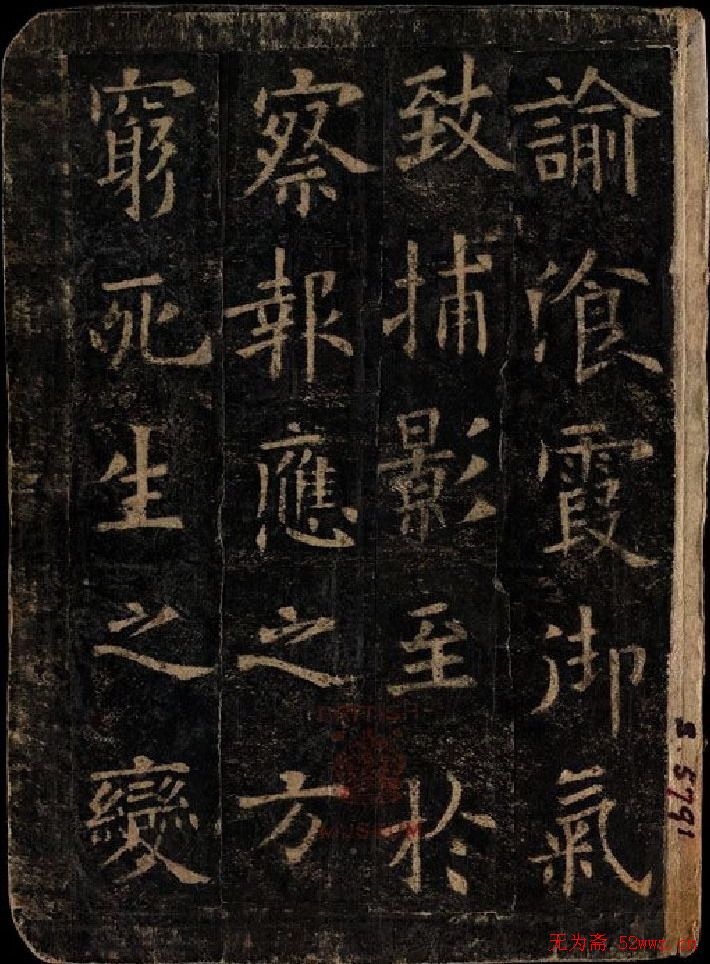 諭飡霞御氣
致捕影至於
察報應之方
窮死生之變
S.5791
MUSEUM
无为斋 52wws.cn